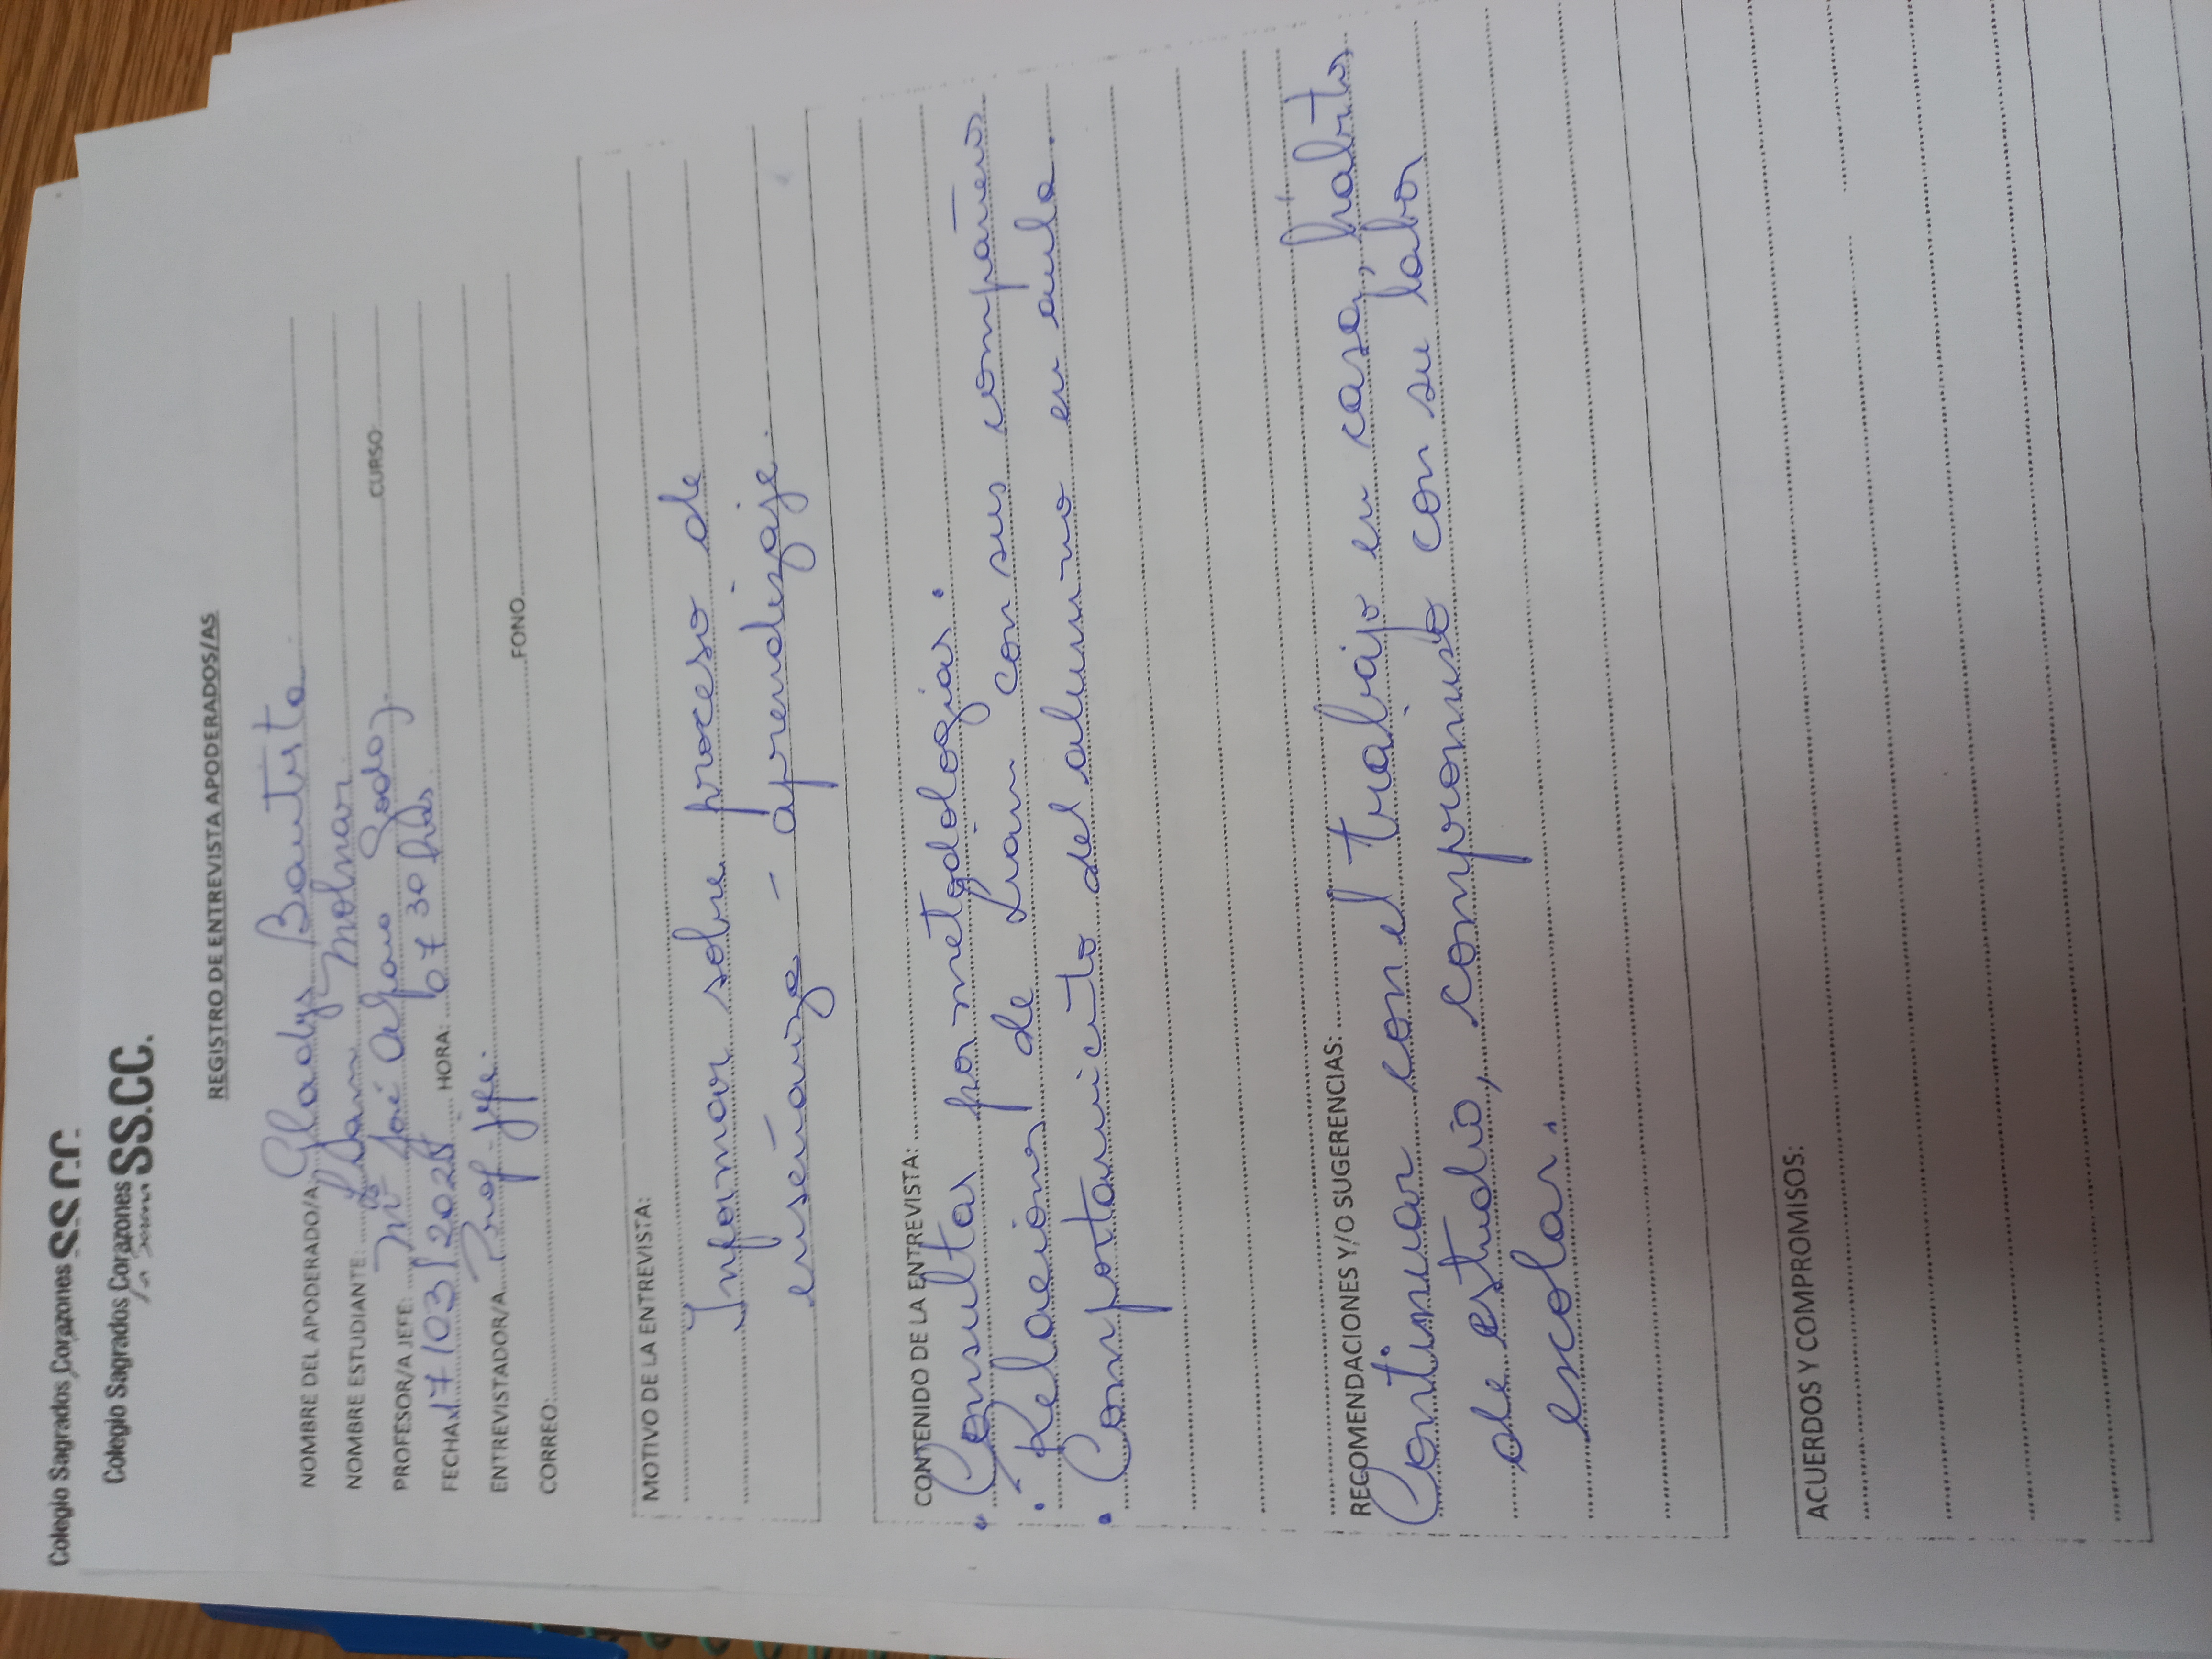 Colegio Sagrados Corazones SS.CC.
Colegio Sagrados Corazones SS.CC.
REGISTRO DE ENTREVISTA APODERADOS/AS
NOMBRE DEL APODERADO/A: Gladys Bautista
NOMBRE ESTUDIANTE: Liam Molnar
PROFESOR/A JEFE: Mª José Alfaro Godoy CURSO
FECHA: 17/03/2025 HORA: 07 30 hrs.
ENTREVISTADOR/A: Prof. Jefe.
CORREO: FONO
MOTIVO DE LA ENTREVISTA:
Informar sobre proceso de
enseñanza - aprendizaje.
CONTENIDO DE LA ENTREVISTA:
• Consultas por metodologías.
• Relaciones de Liam con sus compañeros
• Comportamiento del alumno en aula.
RECOMENDACIONES Y/O SUGERENCIAS:
Continuar con el trabajo en casa, hábitos
de estudio, compromiso con su labor
escolar.
ACUERDOS Y COMPROMISOS: